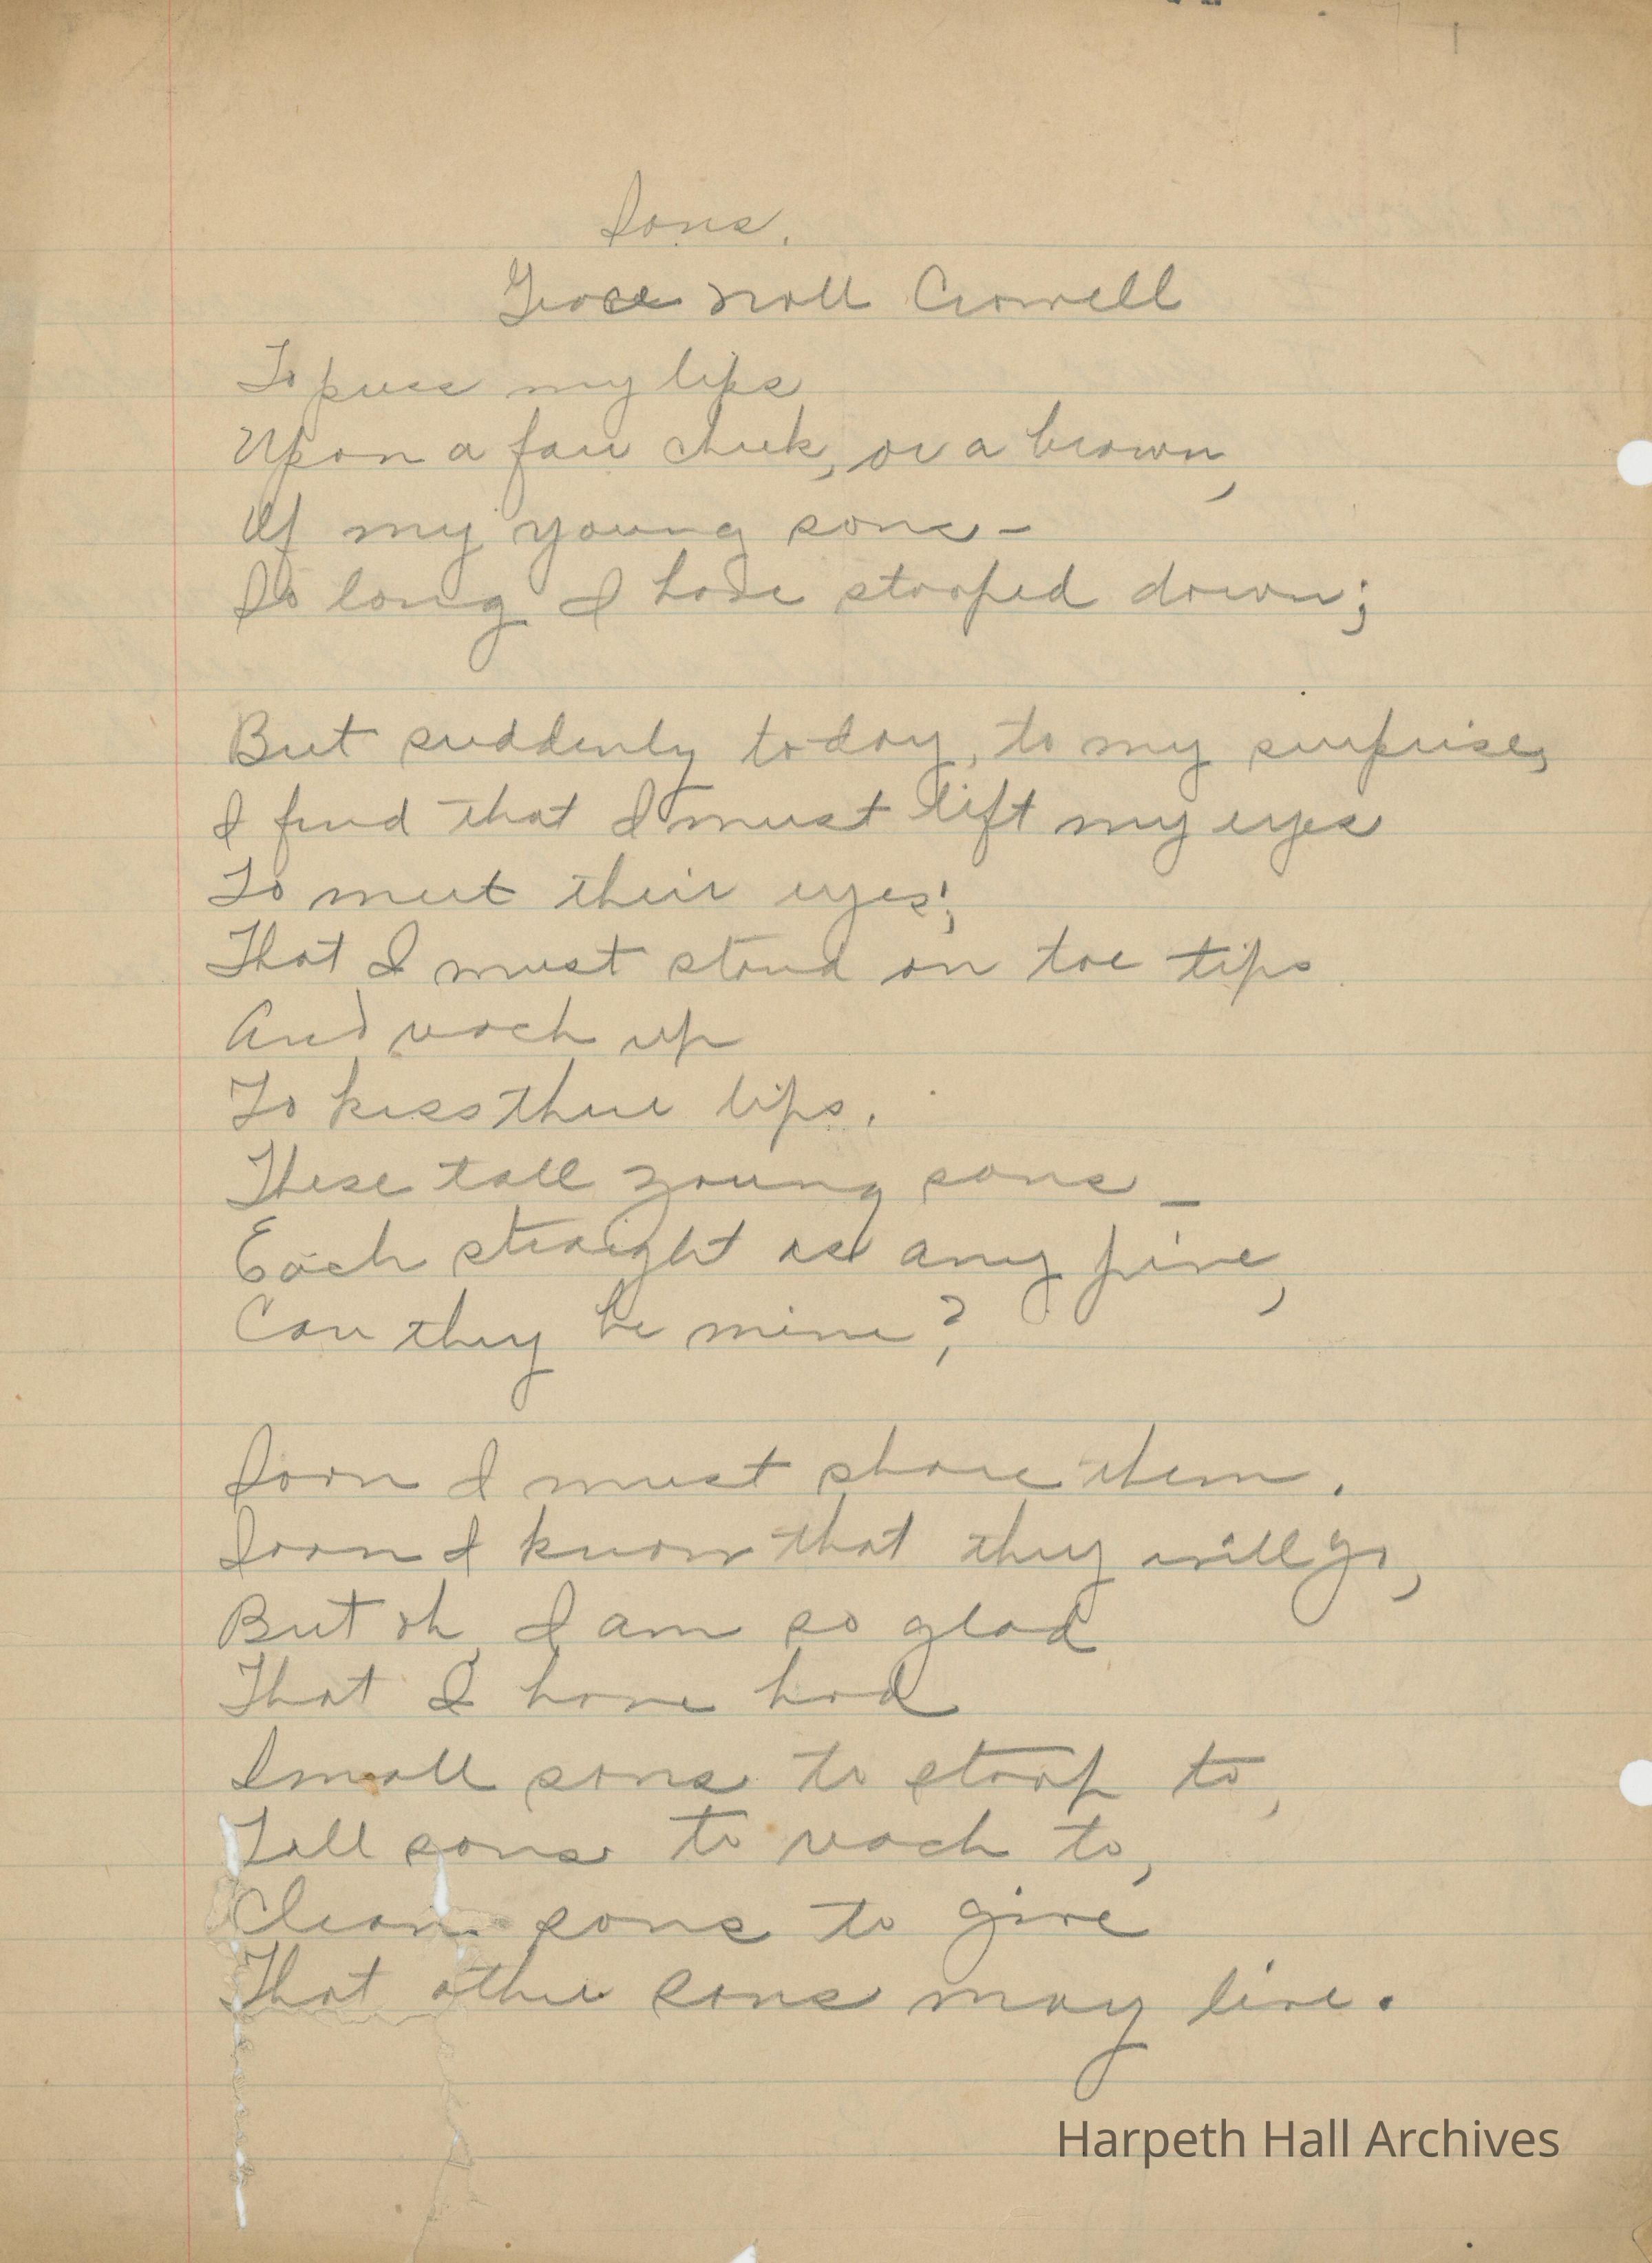 Sons.
Grace Noll Crowell
To press my lips
Upon a fair cheek, or a brown,
Of my young sons –
So long I have stooped down;
But suddenly today, to my surprise,
I find that I must lift my eyes
To meet their eyes;
That I must stand on toe tips
And reach up
To kiss their lips.
These tall young sons –
Each straight as any pine,
Can they be mine?
Soon I must share them.
Soon I know that they will go,
But oh, I am so glad
That I have had
Small sons to stoop to,
Tall sons to reach to,
Clean sons to give
That other sons may live.
Harpeth Hall Archives